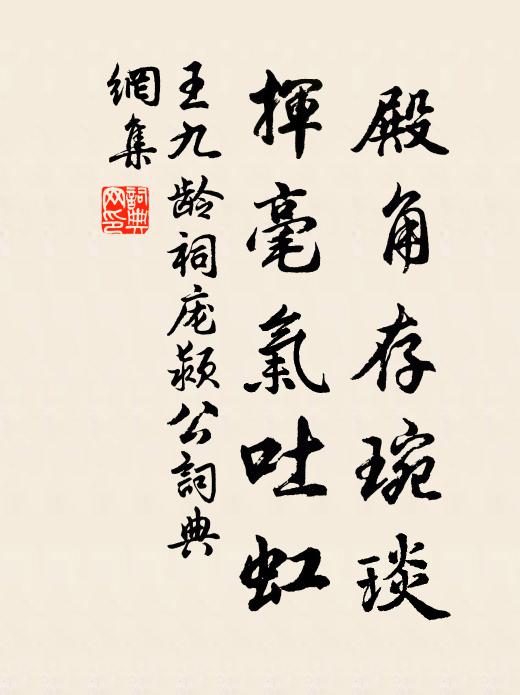 殿角存琬琰
揮毫氣吐虹
王九齡祠庑颍公詞典
網集
詞典網印